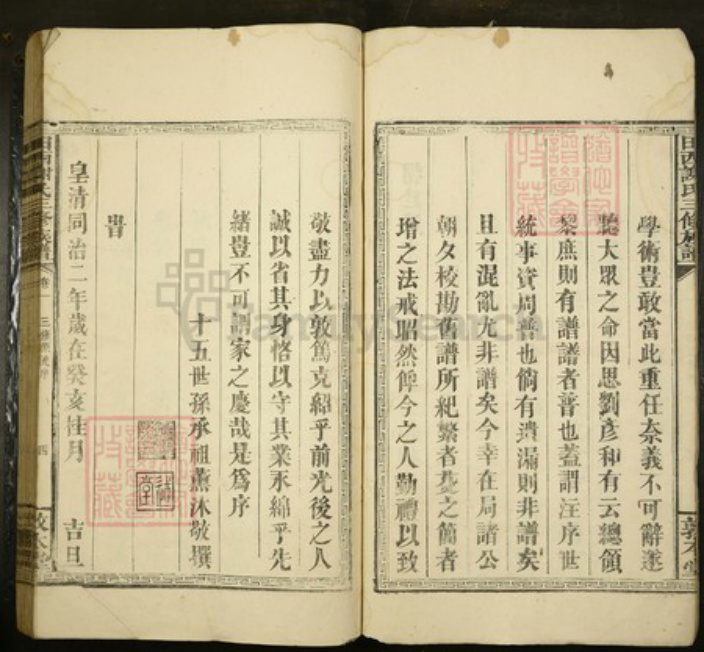 學術豈敢當此重任奈義不可辭遂
聽大眾之命因思劉彥和有云總領
黎庶則有譜譜者普也蓋謂注序世
統事資周普也倘有遺漏則非譜矣
且有混亂尤非譜矣今幸在局諸公
朝夕校勘舊譜所紀繁者芟之簡者
增之法戒昭然俾今之人勤禮以致
敬盡力以敦篤克紹乎前光後之人
誠以省其身恪以守其業永綿乎先
緒豈不可謂家之慶哉是為序
十五世孫承祖薰沐敬撰
旹
皇清同治二年歲在癸亥桂月 吉旦
田西謝氏三修族譜
敦本堂
FamilySearch